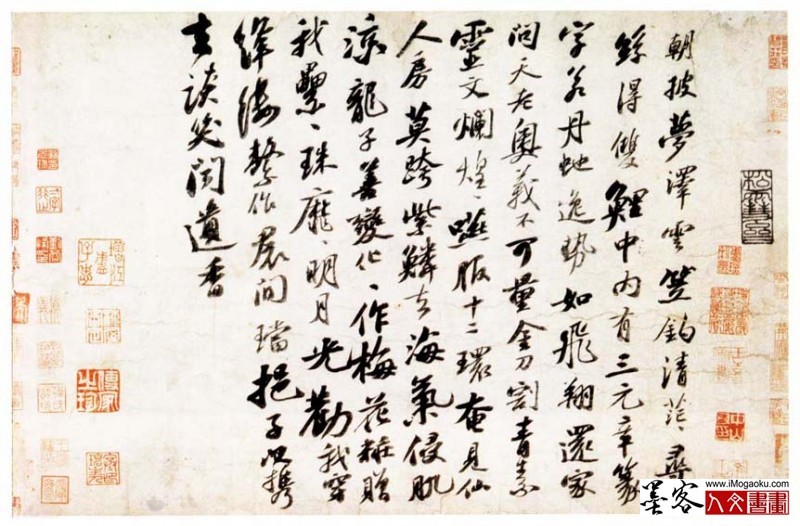 朝披夢澤雲笠釣清茫〻尋
絲得雙鯉中内有三元章篆
字若丹虵逸勢如飛翔還家
問天老奧義不可量金刀割青素
靈文爛煌〻嚥服十二環奄見仙
人房莫跨紫鱗去海氣侵肌
涼龍子善變化〻作梅花粧贈
我纍〻珠靡〻明月光勸我穿
絳縷繫作裙間璫挹子以攜
去談笑聞遺香
松雪齋
墨客
www.iMogaoku.com
人文書畫